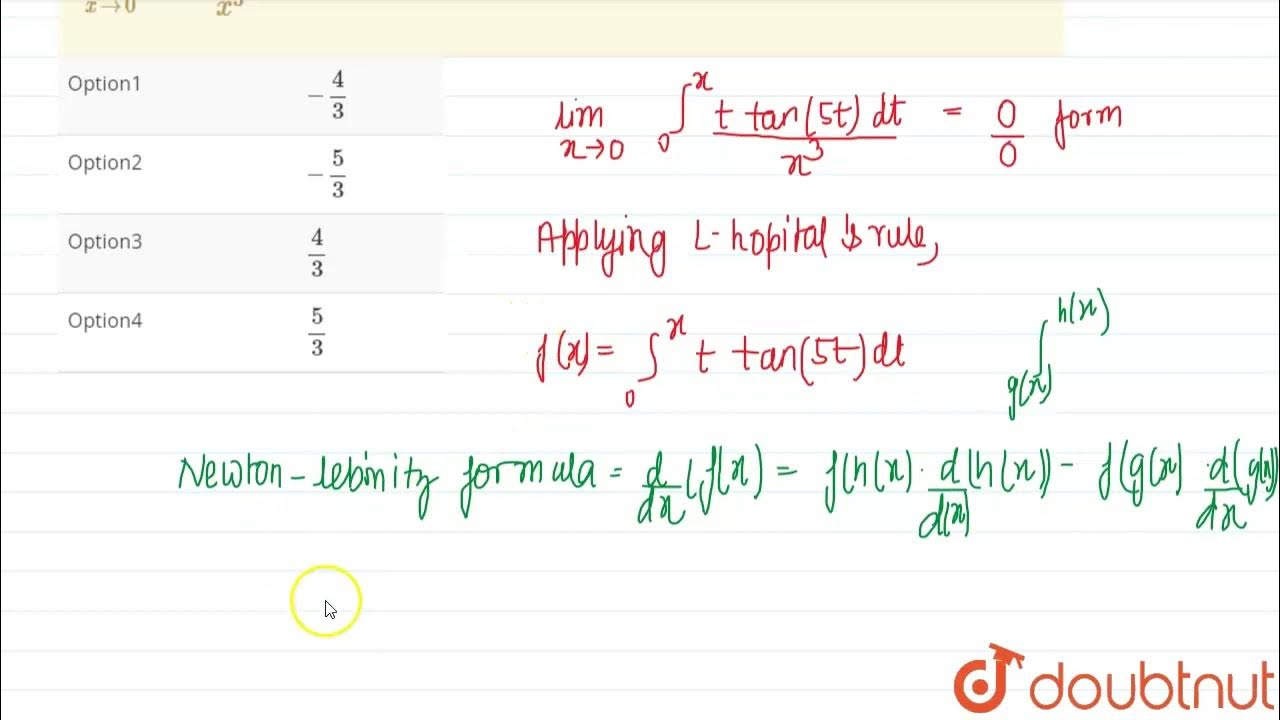 x→0 x³
Option1 -4/3
Option2 -5/3
Option3 4/3
Option4 5/3
lim x→0 ∫₀ˣ t tan(5t) dt / x³ = 0/0 form
Applying L-hopital's rule,
f(x) = ∫₀ˣ t tan(5t) dt
∫ g(x) h(x)
Newton-lebinitz formula = d/dx (f(x) = f(h(x) · d/d(x) (h(x)) - f(g(x) · d/dx (g(x))
doubtnut